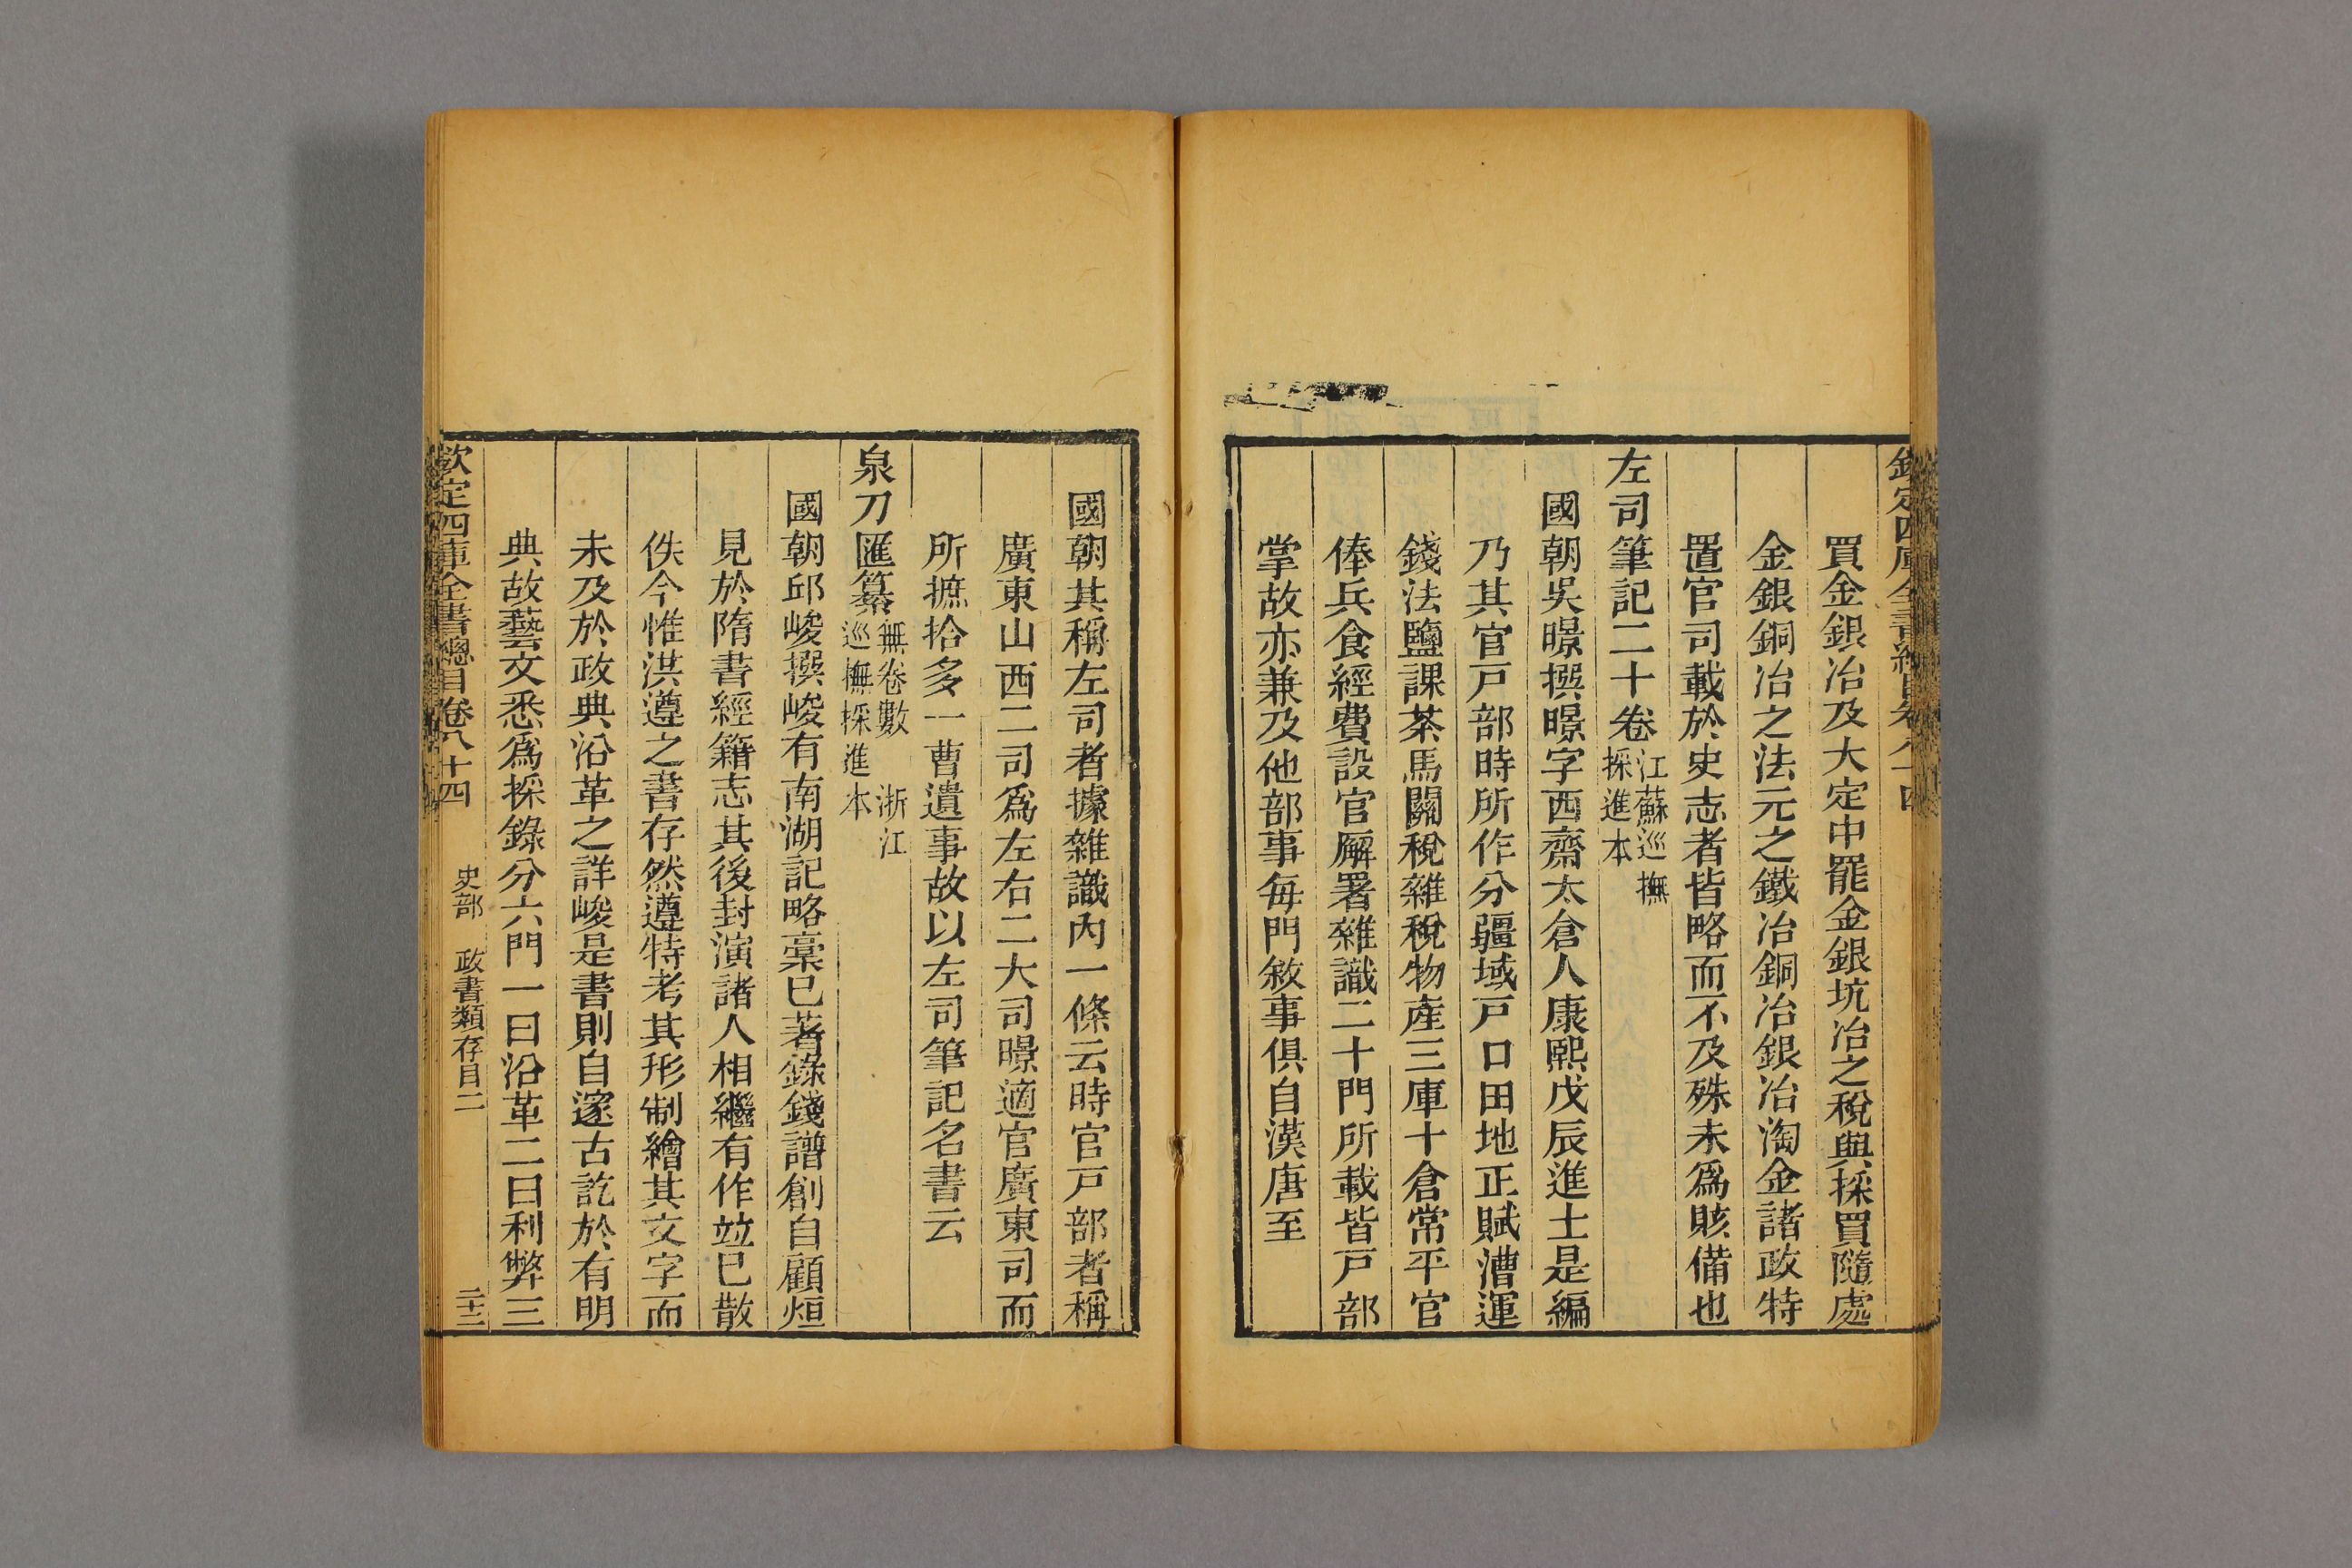 買金銀冶及大定中罷金銀坑冶之稅與採買隨處
金銀銅冶之法元之鐵冶銅冶銀冶淘金諸政特
置官司載於史志者皆略而不及殊未爲賅備也
左司筆記二十卷江蘇巡撫採進本
國朝吳暻撰暻字西齋太倉人康熙戊辰進士是編
乃其官戸部時所作分疆域戸口田地正賦漕運
錢法鹽課茶馬關稅雜稅物產三庫十倉常平官
俸兵食經費設官廨署雜識二十門所載皆戸部
掌故亦兼及他部事每門敘事俱自漢唐至
國朝其稱左司者據雜識內一條云時官戸部者稱
廣東山西二司爲左右二大司暻適官廣東司而
所摭拾多一曹遺事故以左司筆記名書云
泉刀匯纂無卷數 浙江巡撫採進本
國朝邱峻撰峻有南湖記略稾已著錄錢譜創自顧烜
見於隋書經籍志其後封演諸人相繼有作竝已散
佚今惟洪遵之書存然遵特考其形制繪其文字而
未及於政典沿革之詳峻是書則自邃古訖於有明
典故藝文悉爲採錄分六門一曰沿革二曰利弊三
欽定四庫全書總目卷八十四 史部 政書類存目二 二十三